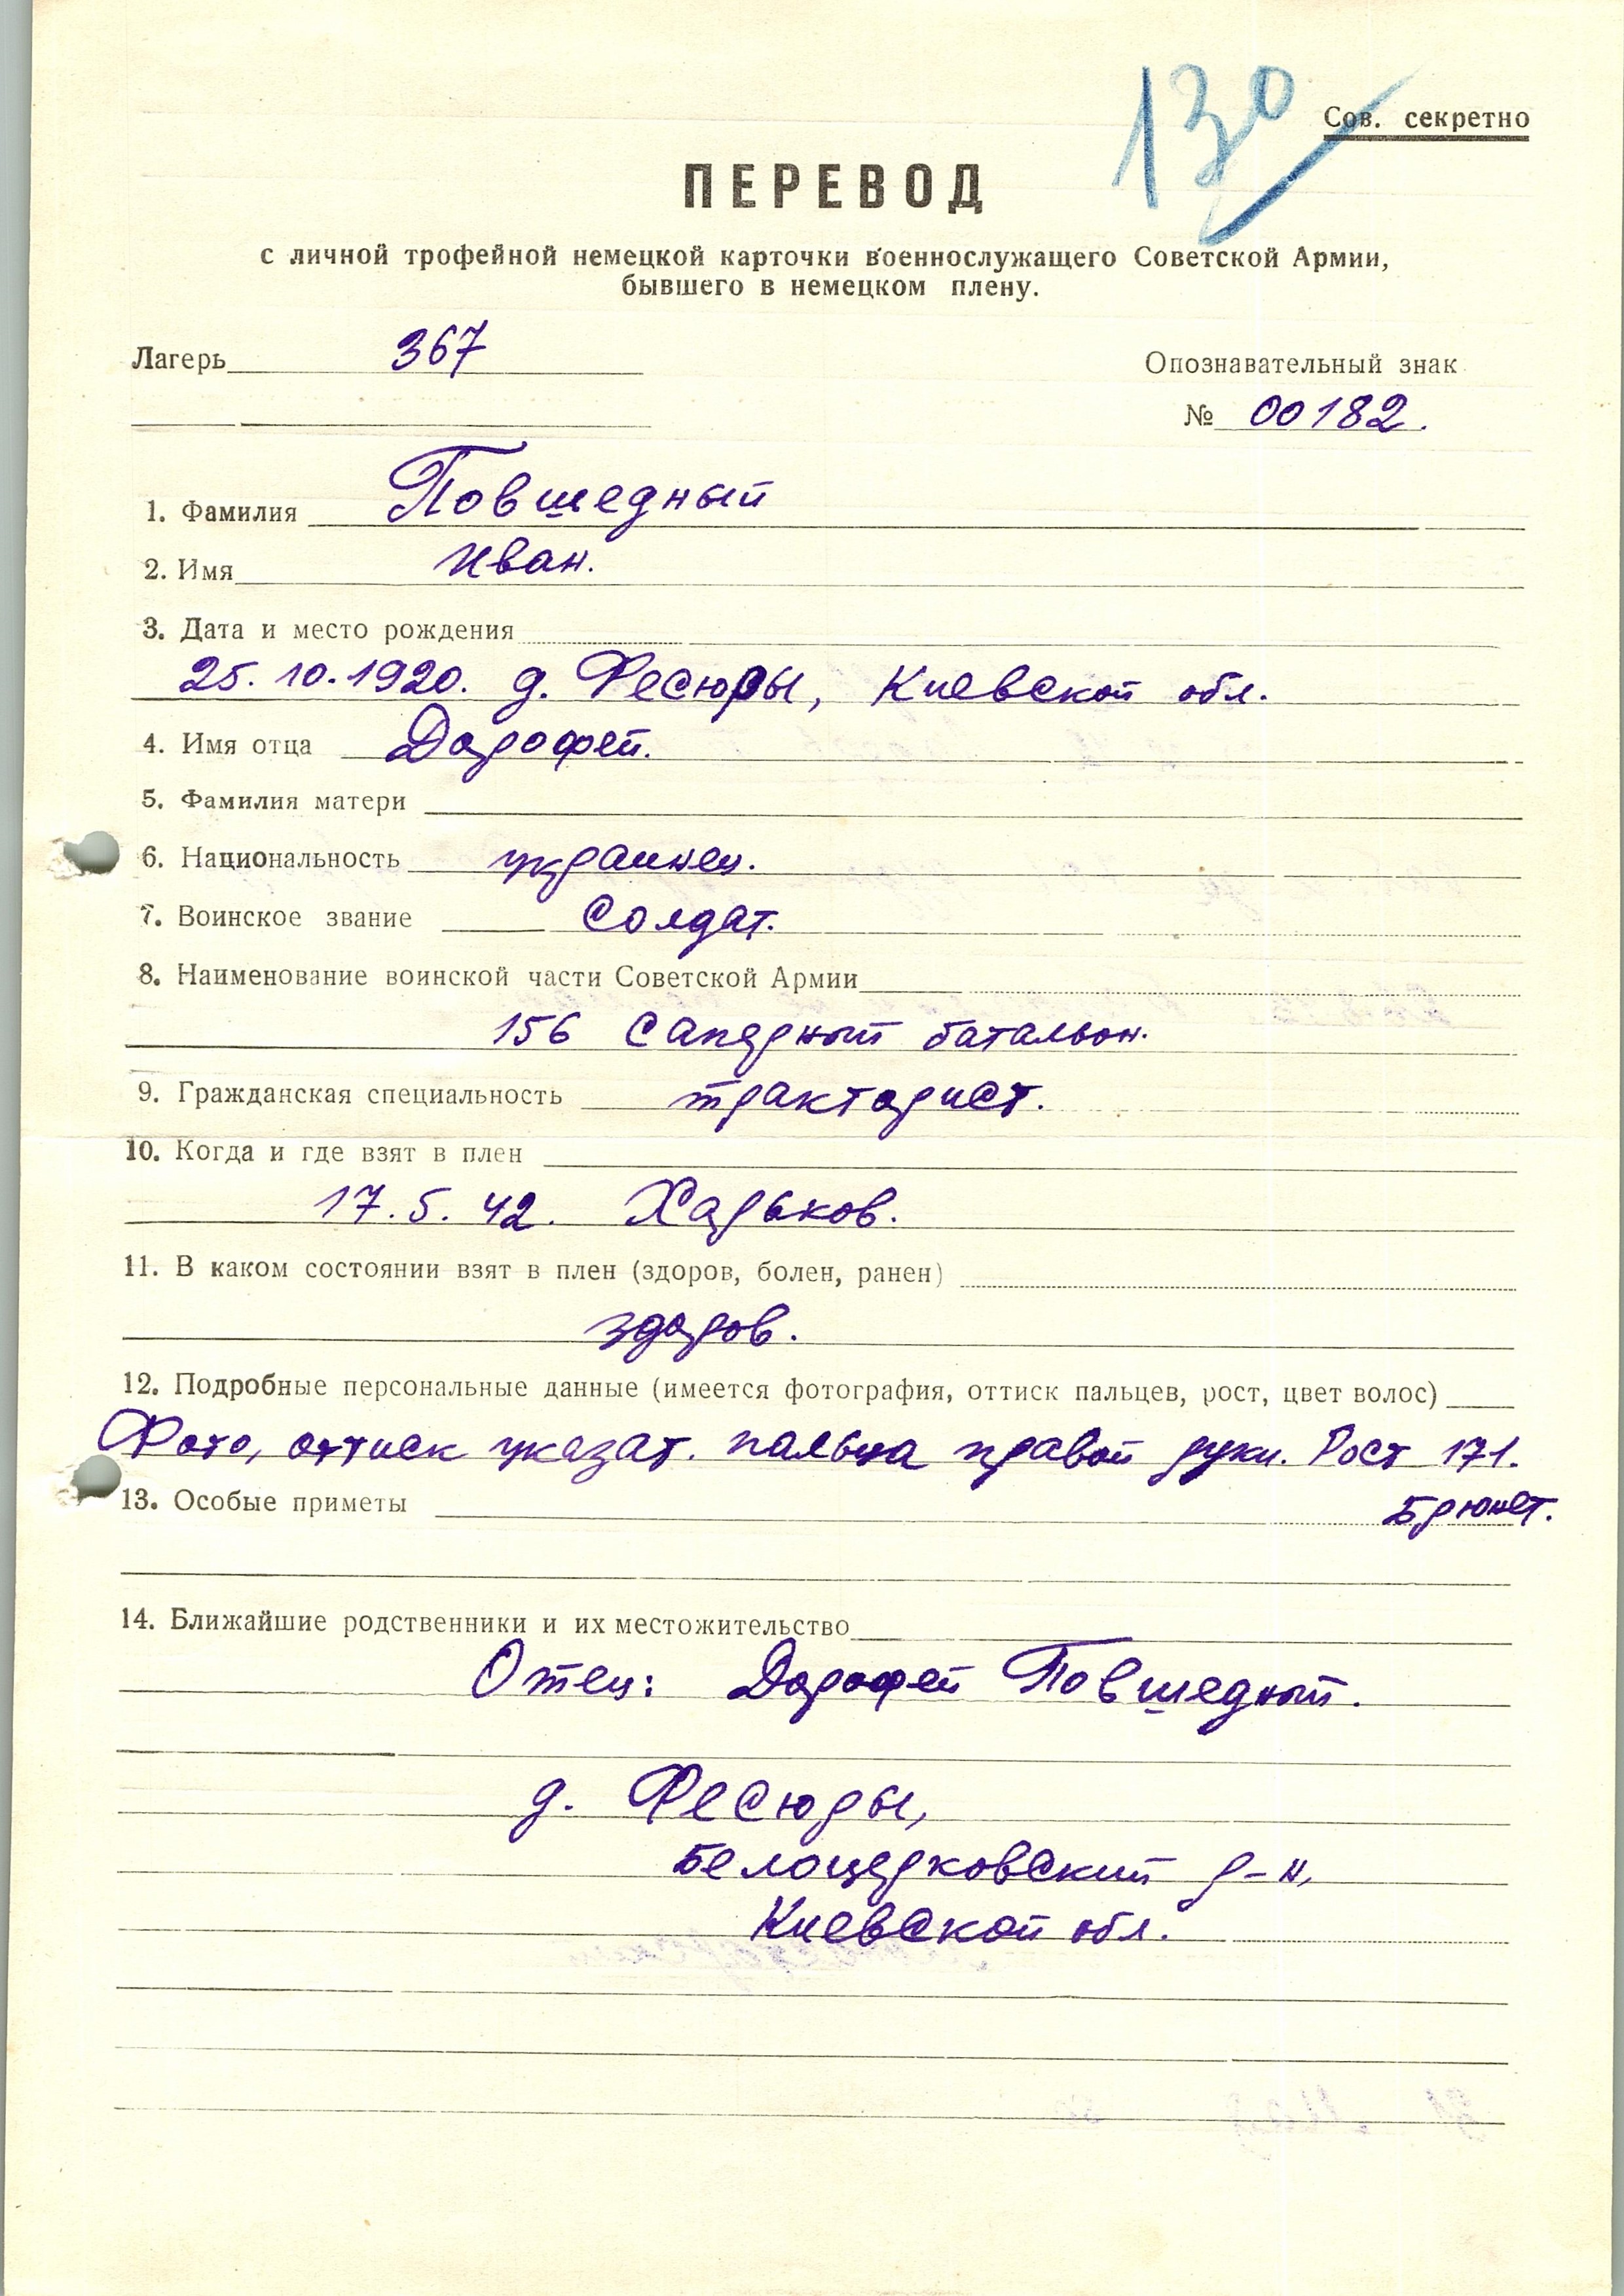 130
Сов. секретно
ПЕРЕВОД
с личной трофейной немецкой карточки военнослужащего Советской Армии,
бывшего в немецком плену.
Лагерь 367
Опознавательный знак
№ 00182.
1. Фамилия Повшедный
2. Имя Иван.
3. Дата и место рождения
25.10.1920. д. Фесюры, Киевской обл.
4. Имя отца Дорофей.
5. Фамилия матери
6. Национальность украинец.
7. Воинское звание Солдат.
8. Наименование воинской части Советской Армии
156 Саперный батальон.
9. Гражданская специальность тракторист.
10. Когда и где взят в плен
17.5.42. Харьков.
11. В каком состоянии взят в плен (здоров, болен, ранен)
здоров.
12. Подробные персональные данные (имеется фотография, оттиск пальцев, рост, цвет волос)
Фото, оттиск указат. пальца правой руки. Рост 171.
Брюнет.
13. Особые приметы
14. Ближайшие родственники и их местожительство
Отец: Дорофей Повшедный.
д. Фесюры,
Белоцерковский р-н,
Киевской обл.